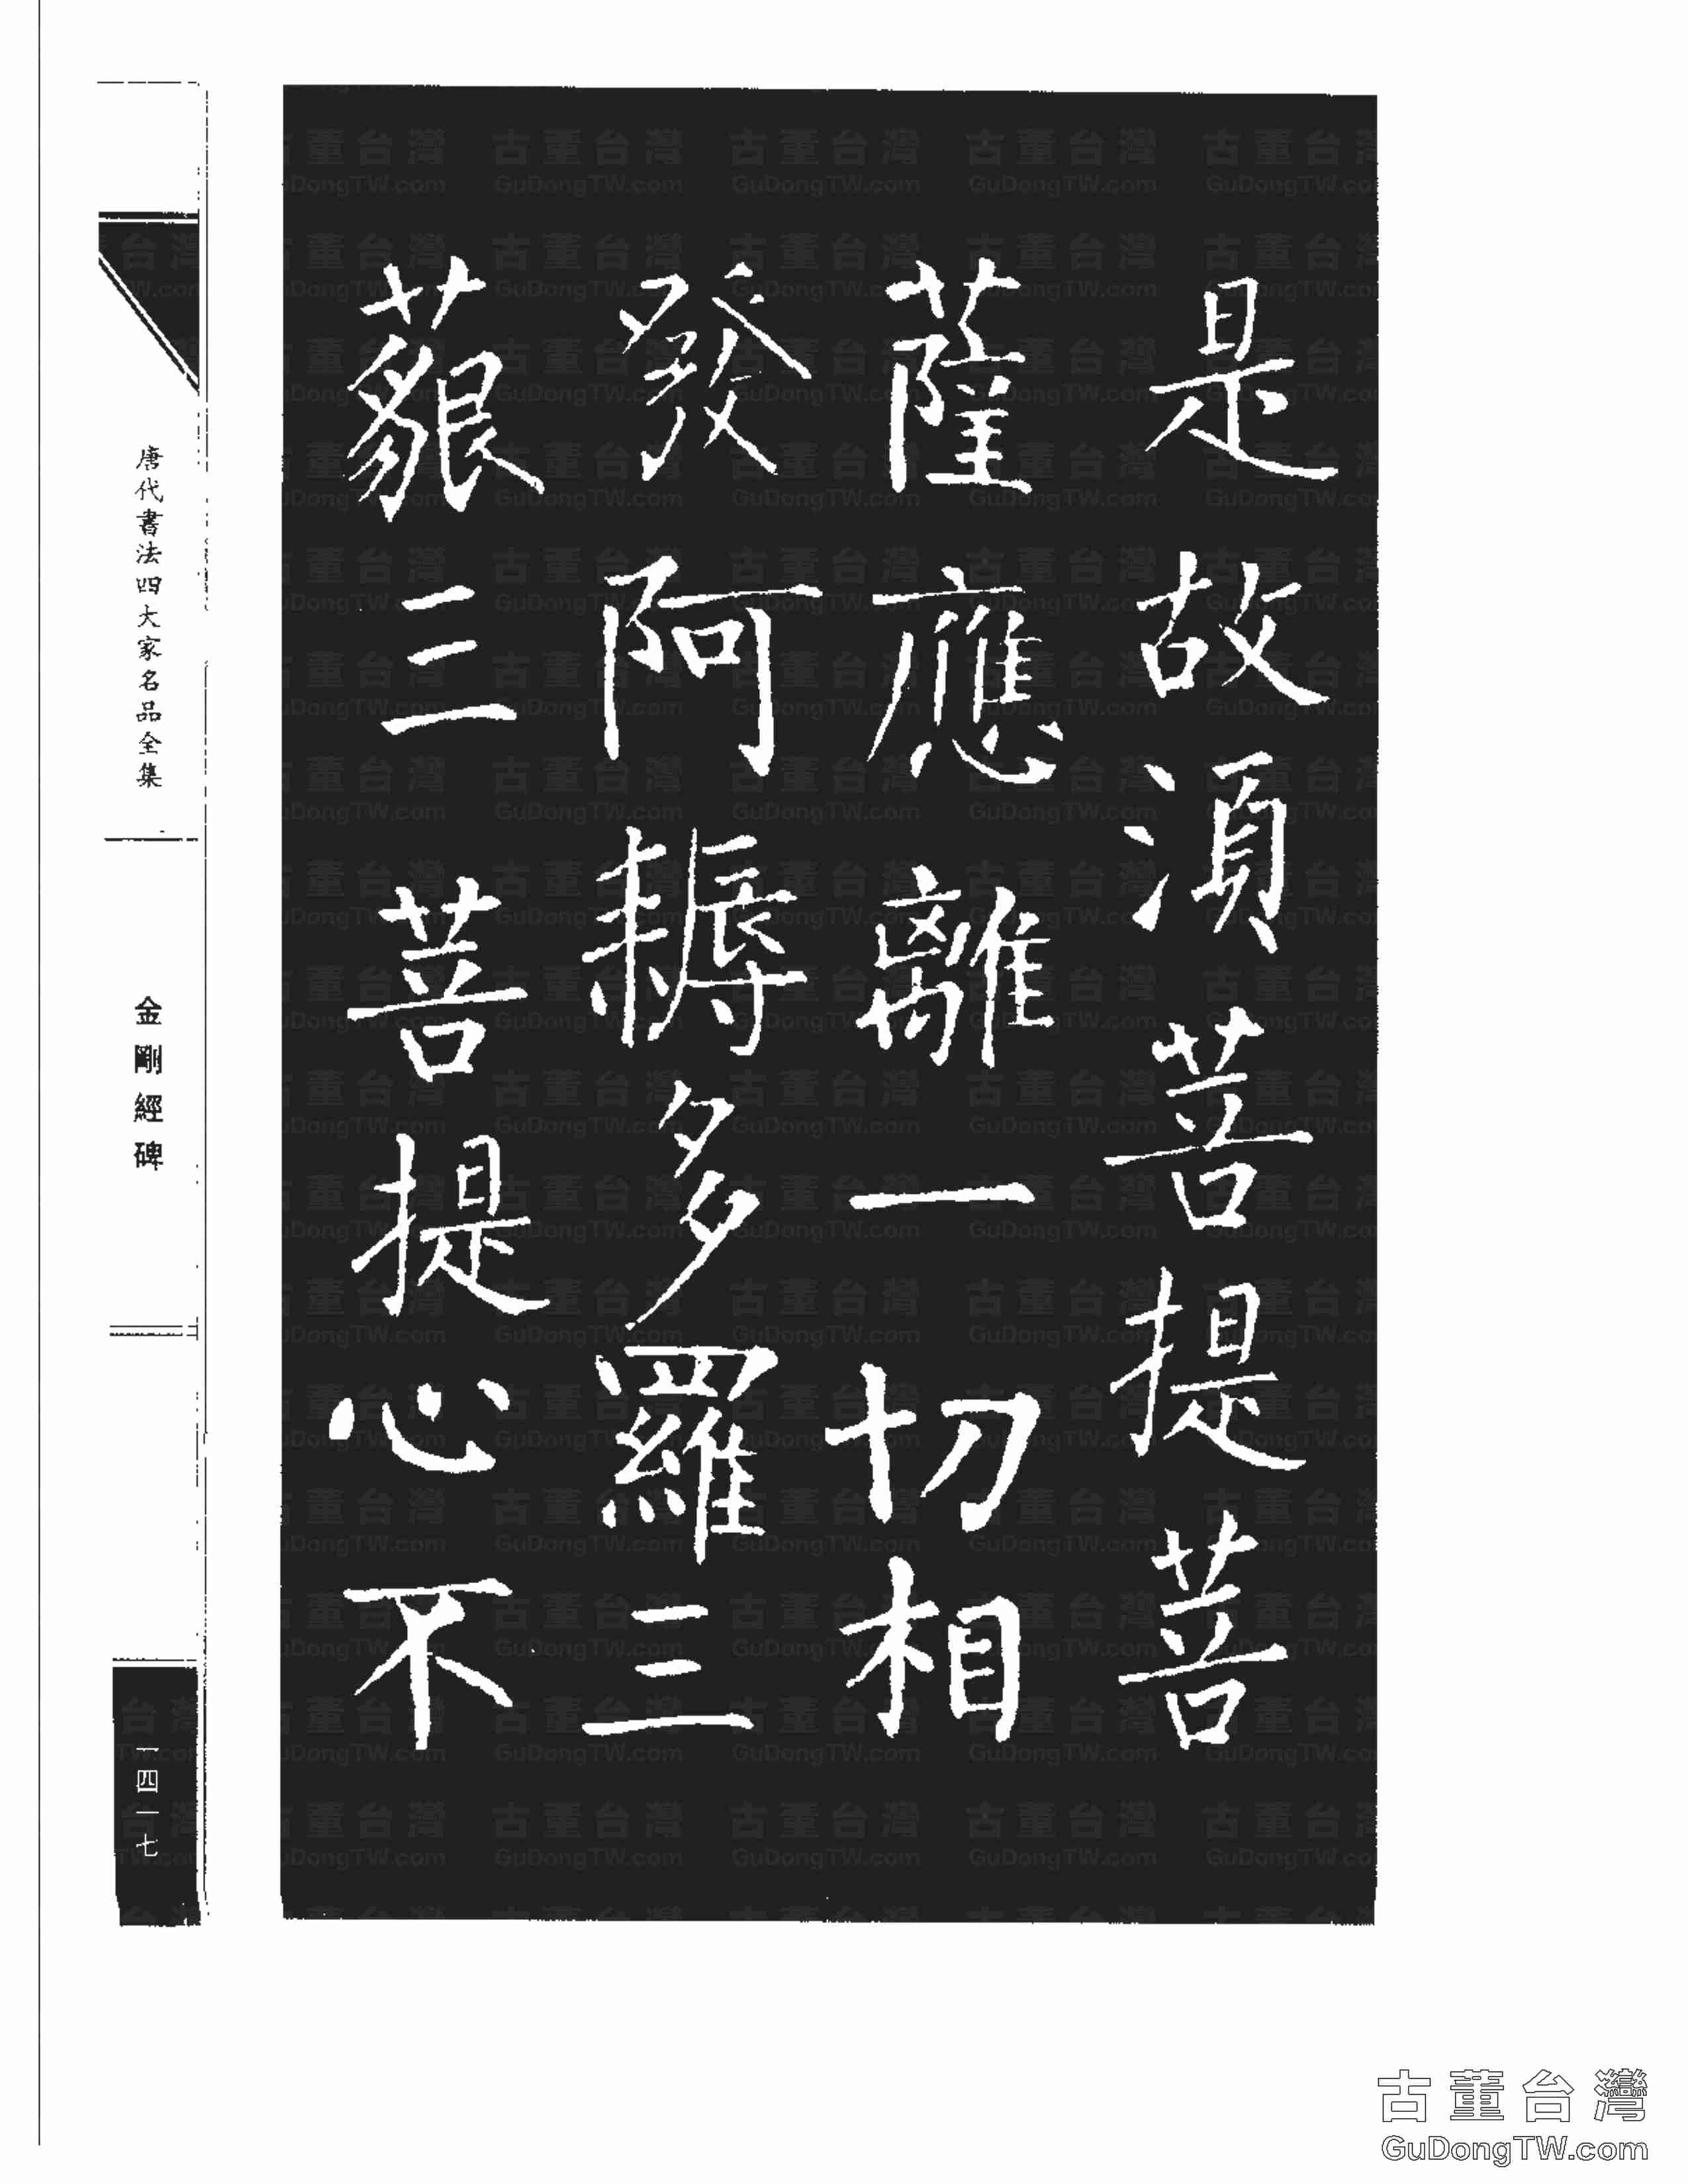 是故湏菩提菩
薩應離一切相
發阿耨多羅三
藐三菩提心不
唐代書法四大家名品全集
金剛經碑
一四一七
古董台灣
GuDongTW.com